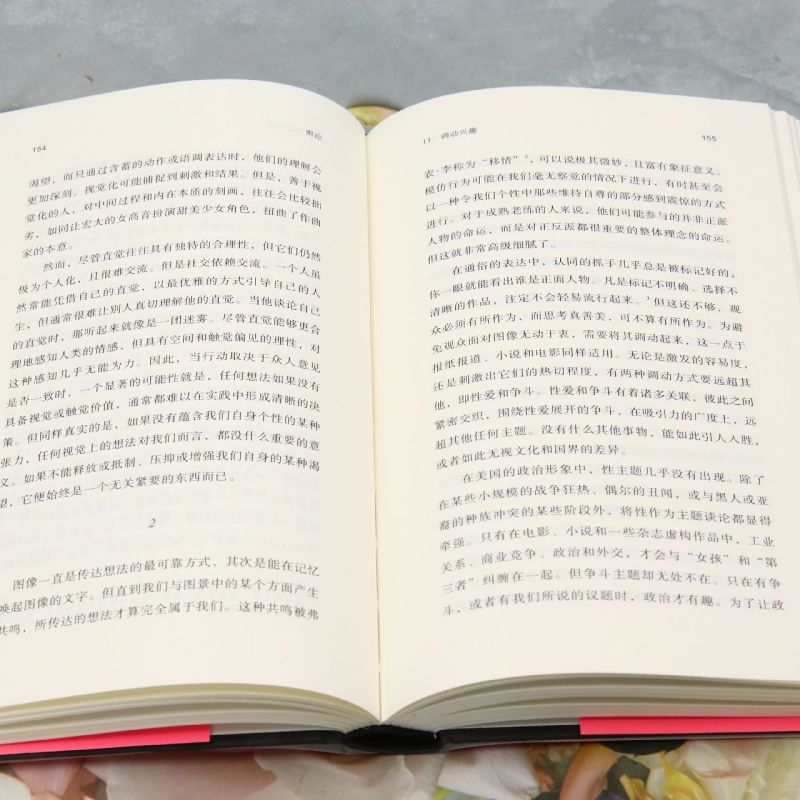 154
舆论
渴望，而只通过含蓄的动作或语调表达时，他们的理解会
更加深刻。视觉化可能捕捉到刺激和结果。但是，善于视
觉化的人，对中间过程和内在本质的刻画，往往会比较拙
劣，如同让宏大的女高音扮演甜美少女角色，扭曲了作曲
家的本意。
然而，尽管直觉往往具有独特的合理性，但它们仍然
极为个人化，且很难交流。但是社交依赖交流。一个人虽
然常能凭借自己的直觉，以最优雅的方式引导自己的人
生，但通常很难让别人真切理解他的直觉。当他谈论自己
的直觉时，那听起来就像是一团迷雾。尽管直觉能够更合
理地感知人类的情感，但具有空间和触觉偏见的理性，对
这种感知几乎无能为力。因此，当行动取决于众人意见
是否一致时，一个显著的可能性就是，任何想法如果没有
具备视觉或触觉价值，通常都难以在实践中形成清晰的决
策。但同样真实的是，如果没有蕴含我们自身个性的某种
张力，任何视觉上的想法对我们而言，都没什么重要的意
义。如果不能释放或抵制、压抑或增强我们自身的某种渴
望，它便始终是一个无关紧要的东西而已。
2
图像一直是传达想法的最可靠方式，其次是能在记忆
唤起图像的文字。但直到我们与图景中的某个方面产生
共鸣，所传达的想法才算完全属于我们。这种共鸣被弗
11 调动兴趣
155
农·李称为“移情”²，可以说极其微妙，且富有象征意义。
模仿行为可能在我们无察觉的情况下进行，有时甚至会
以一种令我们个性中那些维持自尊的部分感到震惊的方式
进行。对于成熟老练的人来说，他们可能参与的并非正派
人物的命运，而是对正反派都很重要的整体理念的命运。
但这就非常高级细腻了。
在通俗的表达中，认同的抓手几乎总是被标记好的，
你一眼就能看出谁是正面人物。凡是标记不明确、选择不
清晰的作品，注定不会轻易流行起来。³但这还不够，观
众必须有所作为，而思考真善美，可不算有所作为。为避
免观众面对图像无动于衷，需要将其调动起来，这一点于
报纸报道、小说和电影同样适用。无论是激发的容易度，
还是刺激出它们的热切程度，有两种调动方式要远超其
他，即性爱和争斗。性爱和争斗有着诸多关联，彼此之间
紧密交织，围绕性爱展开的争斗，在吸引力的广度上，远
超其他任何主题。没有什么其他事物，能如此引人入胜，
或者如此无视文化和国界的差异。
在美国的政治形象中，性主题几乎没有出现。除了
在某些小规模的战争狂热、偶尔的丑闻，或与黑人或亚
裔的种族冲突的某些阶段外，将性作为主题谈论都显得
牵强。只有在电影、小说和一些杂志虚构作品中，工业
关系、商业竞争、政治和外交，才会与“女孩”和“第
三者”纠缠在一起。但争斗主题却无处不在。只在有争
斗，或者有我们所说的议题时，政治才有趣。为了让政